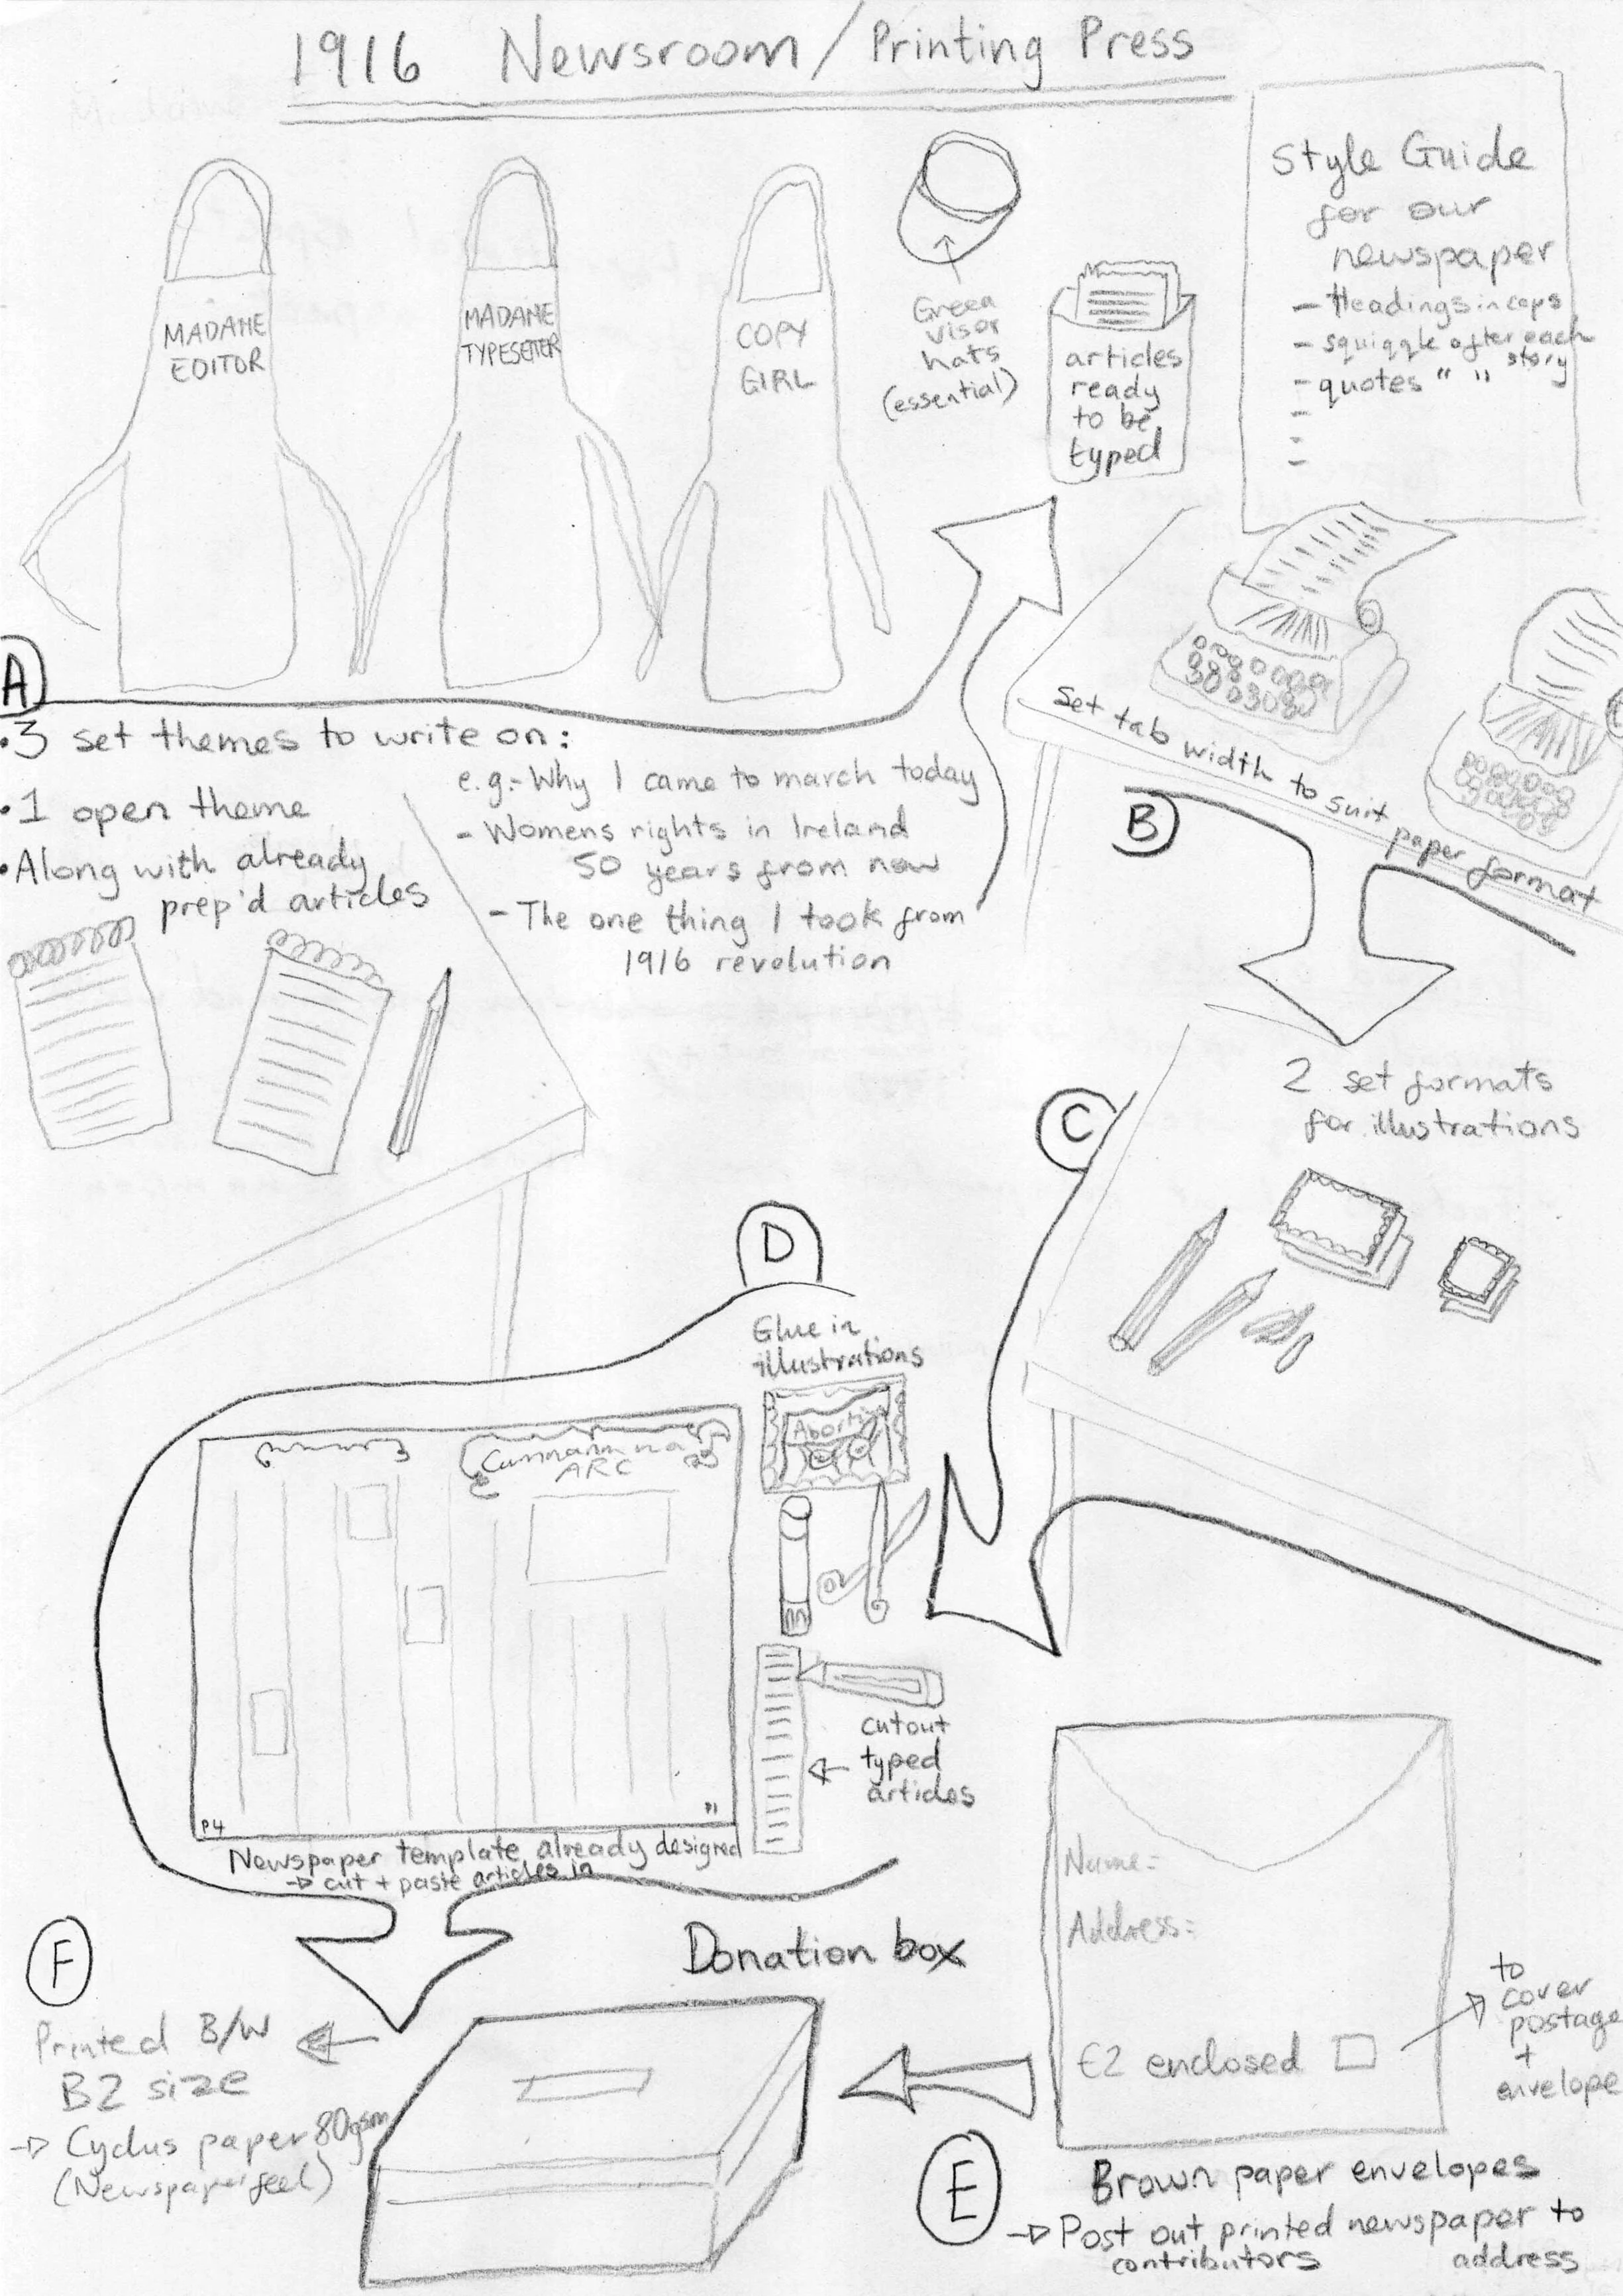 1916 Newsroom / Printing Press
MADAME
EDITOR
MADAME
TYPESETTER
COPY
GIRL
Green
visor
hats
(essential)
articles
ready
to be
typed
Style Guide
for our
newspaper
- Headings in caps
- squiggle after each
story
- quotes " "
-
-
-
A
• 3 set themes to write on:
• 1 open theme
• Along with already
prep'd articles
e.g:- Why I came to march today
- Womens rights in Ireland
50 years from now
- The one thing I took from
1916 revolution
Set tab width to suit paper format
B
C
2 set formats
for illustrations
D
Glue in
illustrations
Abortion
ARC
cutout
typed
articles
P4
P1
Newspaper template already designed
→ cut + paste articles in
Donation box
F
Printed B/W
B2 size
→ Cyclus paper 80gsm
(Newspaper feel)
Name:
Address:
€2 enclosed
to
cover
postage
+
envelope
E
Brown paper envelopes
→ Post out printed newspaper to
contributors address